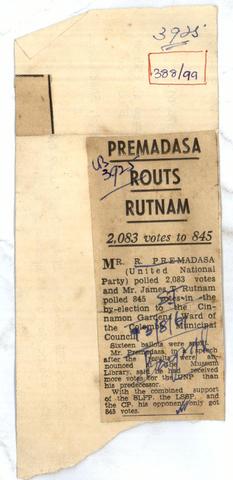 3925
388/99
PREMADASA
ROUTS
RUTNAM
3925
2,083 votes to 845
MR. R. PREMADASA
(United National
Party) polled 2,083 votes
and Mr. James T. Rutnam
polled 845 votes in the
by-election to the Cin-
namon Gardens Ward of
the Colombo Municipal
Council.
Sixteen ballots were
Mr. Premadasa, in a speech
after the results were an-
nounced the Museum
Library, said he had received
more votes for the UNP than
his predecessor.
With the combined support
of the SLFP, the LSSP, and
the CP, his opponent only got
845 votes.